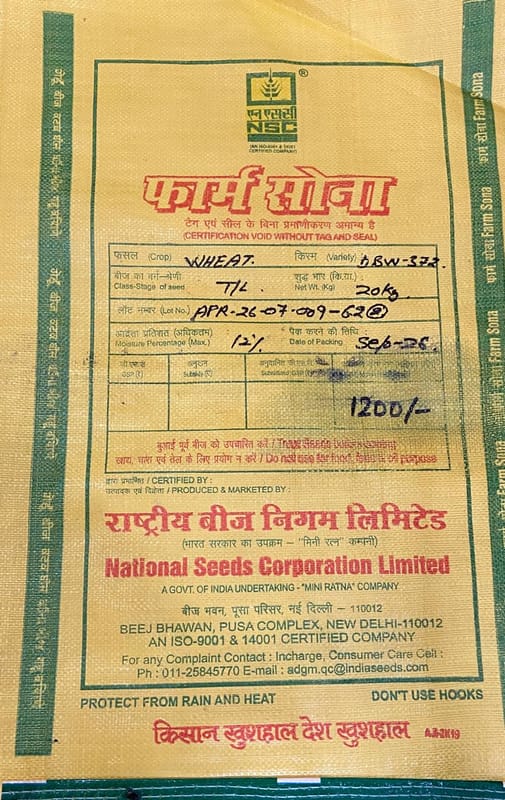 ®
एन एस सी
NSC
(AN ISO-9001 & 14001
CERTIFIED COMPANY)
फार्म सोना
टैग एवं सील के बिना प्रमाणीकरण अमान्य है
(CERTIFICATION VOID WITHOUT TAG AND SEAL)
फसल (Crop) WHEAT. किस्म (Variety) DBW-372
बीज का वर्ग-श्रेणी शुद्ध भार (कि.ग्रा.)
Class-Stage of seed T/L Net Wt. (Kg) 20 Kg.
लौट नम्बर (Lot No.) APR-26-07-009-62
आद्रता प्रतिशत (अधिकतम) पैक करने की तिथि :
Moisture Percentage (Max.) 12% Date of Packing Sep-26.
अनुदान
Subsidy (₹)
1200/-
बुआई पूर्व बीज को उपचारित करें / Treat Seeds before sowing
खाद्य, चारा एवं तेल के लिए प्रयोग न करें / Do not use for food, feed & oil purpose
द्वारा प्रमाणित / CERTIFIED BY :
उत्पादक एवं विक्रेता / PRODUCED & MARKETED BY :
राष्ट्रीय बीज निगम लिमिटेड
(भारत सरकार का उपक्रम – "मिनी रत्न" कम्पनी)
National Seeds Corporation Limited
A GOVT. OF INDIA UNDERTAKING - "MINI RATNA" COMPANY
बीज भवन, पूसा परिसर, नई दिल्ली – 110012
BEEJ BHAWAN, PUSA COMPLEX, NEW DELHI-110012
AN ISO-9001 & 14001 CERTIFIED COMPANY
For any Complaint Contact : Incharge, Consumer Care Cell :
Ph : 011-25845770 E-mail : adgm.qc@indiaseeds.com
PROTECT FROM RAIN AND HEAT DON'T USE HOOKS
किसान खुशहाल देश खुशहाल
फार्म सोना Farm Sona
फार्म सोना Farm Sona